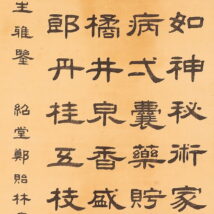 如神秘術家
病弌囊藥貯
橘井泉香盛
郎丹桂五枝
生雅鑒 紹堂鄭貽林